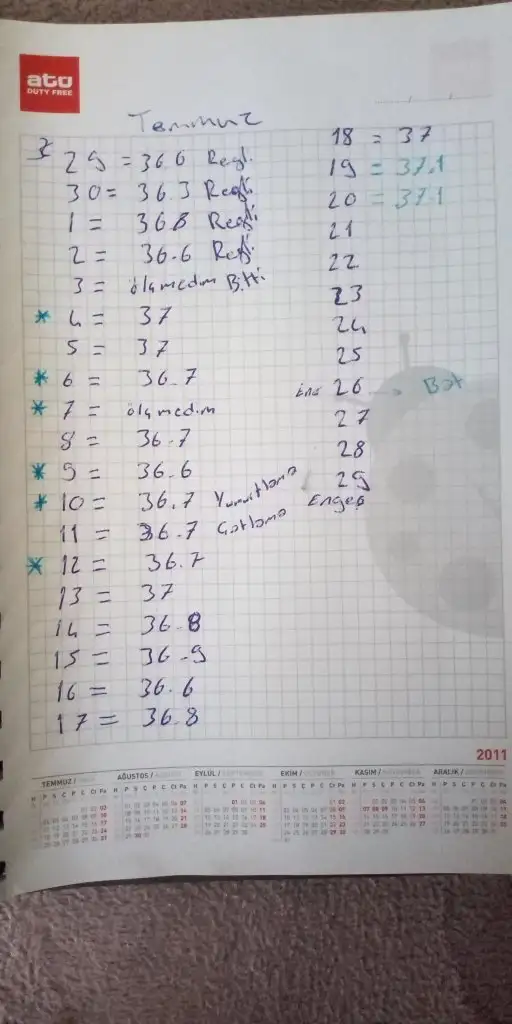 ato
DUTY FREE
Temmuz
29 = 36.6 Regl.
30 = 36.3 Regl.
1 = 36.8 Regl.
2 = 36.6 Regl.
3 = ölçmedim Bitti
* 4 = 37
5 = 37
* 6 = 36.7
* 7 = ölçmedim
8 = 36.7
* 9 = 36.6
* 10 = 36.7 Yumurtlama
11 = 36.7 Çatlama
* 12 = 36.7
13 = 37
14 = 36.8
15 = 36.9
16 = 36.6
17 = 36.8
18 = 37
19 = 37.1
20 = 37.1
21
22
23
24
25
26
27
28
29
2011
TEMMUZ /
AĞUSTOS /
EYLÜL /
EKİM /
KASIM /
ARALIK /